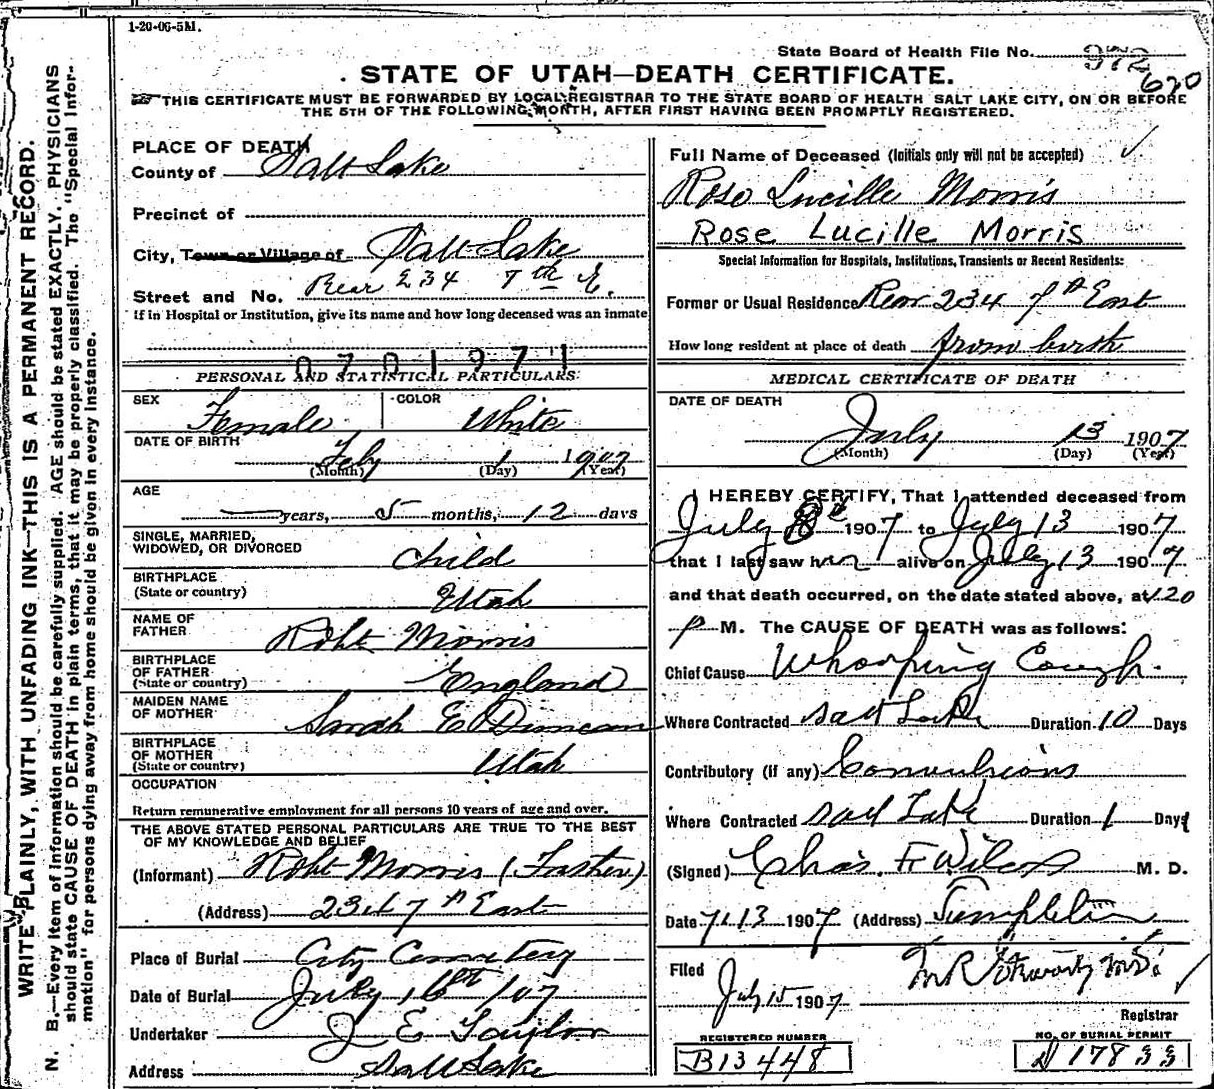 1-20-06-5M.
State Board of Health File No. 372
620
STATE OF UTAH—DEATH CERTIFICATE.
THIS CERTIFICATE MUST BE FORWARDED BY LOCAL REGISTRAR TO THE STATE BOARD OF HEALTH SALT LAKE CITY, ON OR BEFORE
THE 5TH OF THE FOLLOWING MONTH, AFTER FIRST HAVING BEEN PROMPTLY REGISTERED.
WRITE PLAINLY, WITH UNFADING INK—THIS IS A PERMANENT RECORD.
N. B.—Every item of information should be carefully supplied. AGE should be stated EXACTLY. PHYSICIANS
should state CAUSE OF DEATH in plain terms, that it may be properly classified. The "Special Infor-
mation" for persons dying away from home should be given in every instance.
PLACE OF DEATH
County of Salt Lake
Precinct of
City, Town or Village of Salt Lake
Street and No. Rear 234 7th E.
If in Hospital or Institution, give its name and how long deceased was an inmate
0701971
PERSONAL AND STATISTICAL PARTICULARS:
SEX Female COLOR White
DATE OF BIRTH
Feby 1 1907
(Month) (Day) (Year)
AGE
— years, 5 months, 12 days
SINGLE, MARRIED,
WIDOWED, OR DIVORCED Child
BIRTHPLACE
(State or country) Utah
NAME OF
FATHER Robt Morris
BIRTHPLACE
OF FATHER
(State or country) England
MAIDEN NAME
OF MOTHER Sarah E Duncan
BIRTHPLACE
OF MOTHER
(State or country) Utah
OCCUPATION
Return remunerative employment for all persons 10 years of age and over.
THE ABOVE STATED PERSONAL PARTICULARS ARE TRUE TO THE BEST
OF MY KNOWLEDGE AND BELIEF
(Informant) Robt Morris (Father)
(Address) 234 7th East
Place of Burial City Cemetery
Date of Burial July 16th /07
Undertaker J E Taylor
Address Salt Lake
Full Name of Deceased (Initials only will not be accepted)
Rose Lucille Morris
Rose Lucille Morris
Special Information for Hospitals, Institutions, Transients or Recent Residents:
Former or Usual Residence Rear 234 7th East
How long resident at place of death from birth
MEDICAL CERTIFICATE OF DEATH
DATE OF DEATH
July 13 1907
(Month) (Day) (Year)
I HEREBY CERTIFY, That I attended deceased from
July 8th 1907 to July 13 1907
that I last saw her alive on July 13 1907
and that death occurred, on the date stated above, at 120
P M. The CAUSE OF DEATH was as follows:
Chief Cause Whooping Cough
Where Contracted Salt Lake Duration 10 Days
Contributory (if any) Convulsions
Where Contracted Salt Lake Duration 1 Days
(Signed) Chas. F. Wilcox M. D.
Date 7/13 1907 (Address) Templeton
Filed July 15 1907
M.D.
Registrar
REGISTERED NUMBER
B13448
NO. OF BURIAL PERMIT
17833